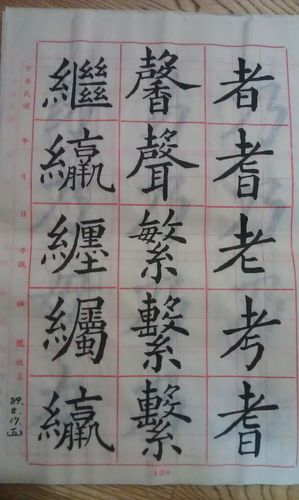 者耆老考耆
馨聲繁繫繫
繼纏
中華民國 年 月 日 年級 班 號 姓名
89.8.17.(五)